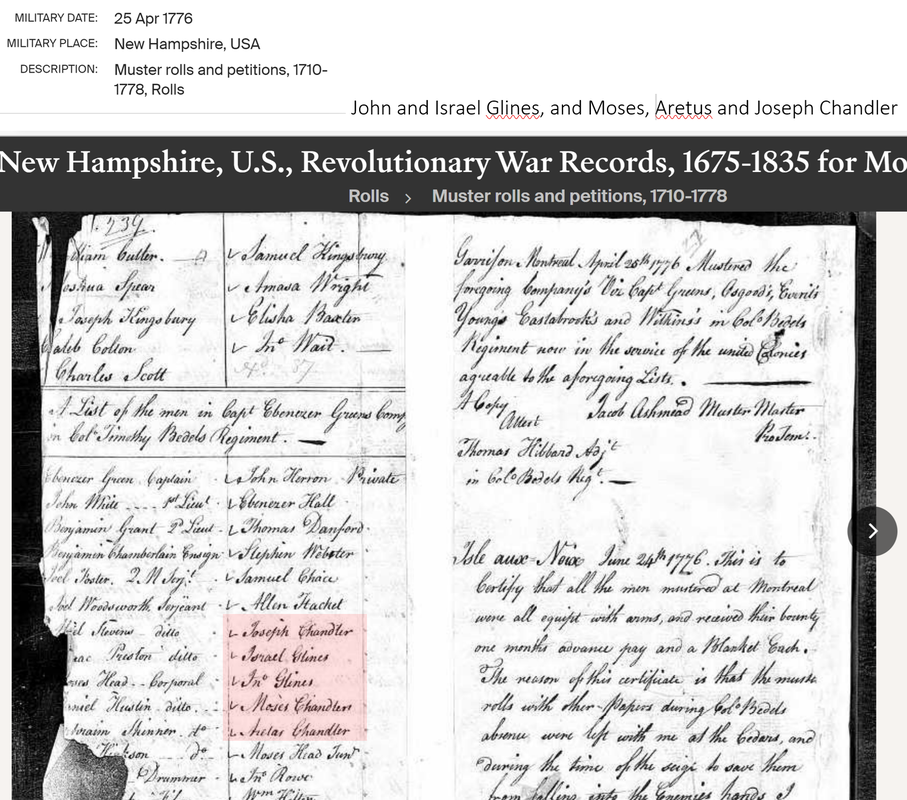 MILITARY DATE: 25 Apr 1776
MILITARY PLACE: New Hampshire, USA
DESCRIPTION: Muster rolls and petitions, 1710-
1778, Rolls
John and Israel Glines, and Moses, Aretus and Joseph Chandler
New Hampshire, U.S., Revolutionary War Records, 1675-1835 for Mo
Rolls > Muster rolls and petitions, 1710-1778
239.
lliam Cutler.
oshua Spear
Joseph Kingsbury
aleb Colton
Charles Scott
Samuel Kingsbury
Amasa Wright
Elisha Baxter
Jnº Wait.
A List of the men in Capt Ebenezer Greens Comp
in Colº Timothy Bedels Regiment.
Ebenezer Green Captain
John White 1st Lieut
Benjamin Grant 2d Lieut
Benjamin Chamberlain Ensign
oel Foster. Q. M Serjt
Joel Woodsworth Serjeant
iel Stevens ditto
aac Preston ditto
oses Head Corporal
niel Huntin ditto
hraim Skinner do
do
Drummer
John Herron Private
Ebenezer Hall
Thomas Danford
Stephen Webster
Samuel Chace
Allen Hacket
Joseph Chandler
Israel Glines
Jnº Glines
Moses Chandler
Aretas Chandler
Moses Head Junr
Jnº Rowe
Wm
Garrison Montreal April 25th 1776 Mustered the
foregoing Company's Viz Capt Greens, Osgood's, Everits
Youngs Eastabrook's and Wilkins's in Colº Bedels
Regiment now in the service of the united Colonies
agreable to the aforegoing Lists.
A Copy
Attest
Jacob Ashmead Muster Master
ProTemr.
Thomas Hibbard Adjt
in Colº Bedels Regt.
Isle aux Noix June 24th 1776. This is to
Certify that all the men mustered at Montreal
were all equipt with arms, and received their bounty
one months advance pay and a Blanket Each.
The reason of this certificate is that the muste
rolls with other Papers during Colº Bedels
absence were left with me at the Cedars, and
during the time of the seige to save them
from falling into the Enemies hands I